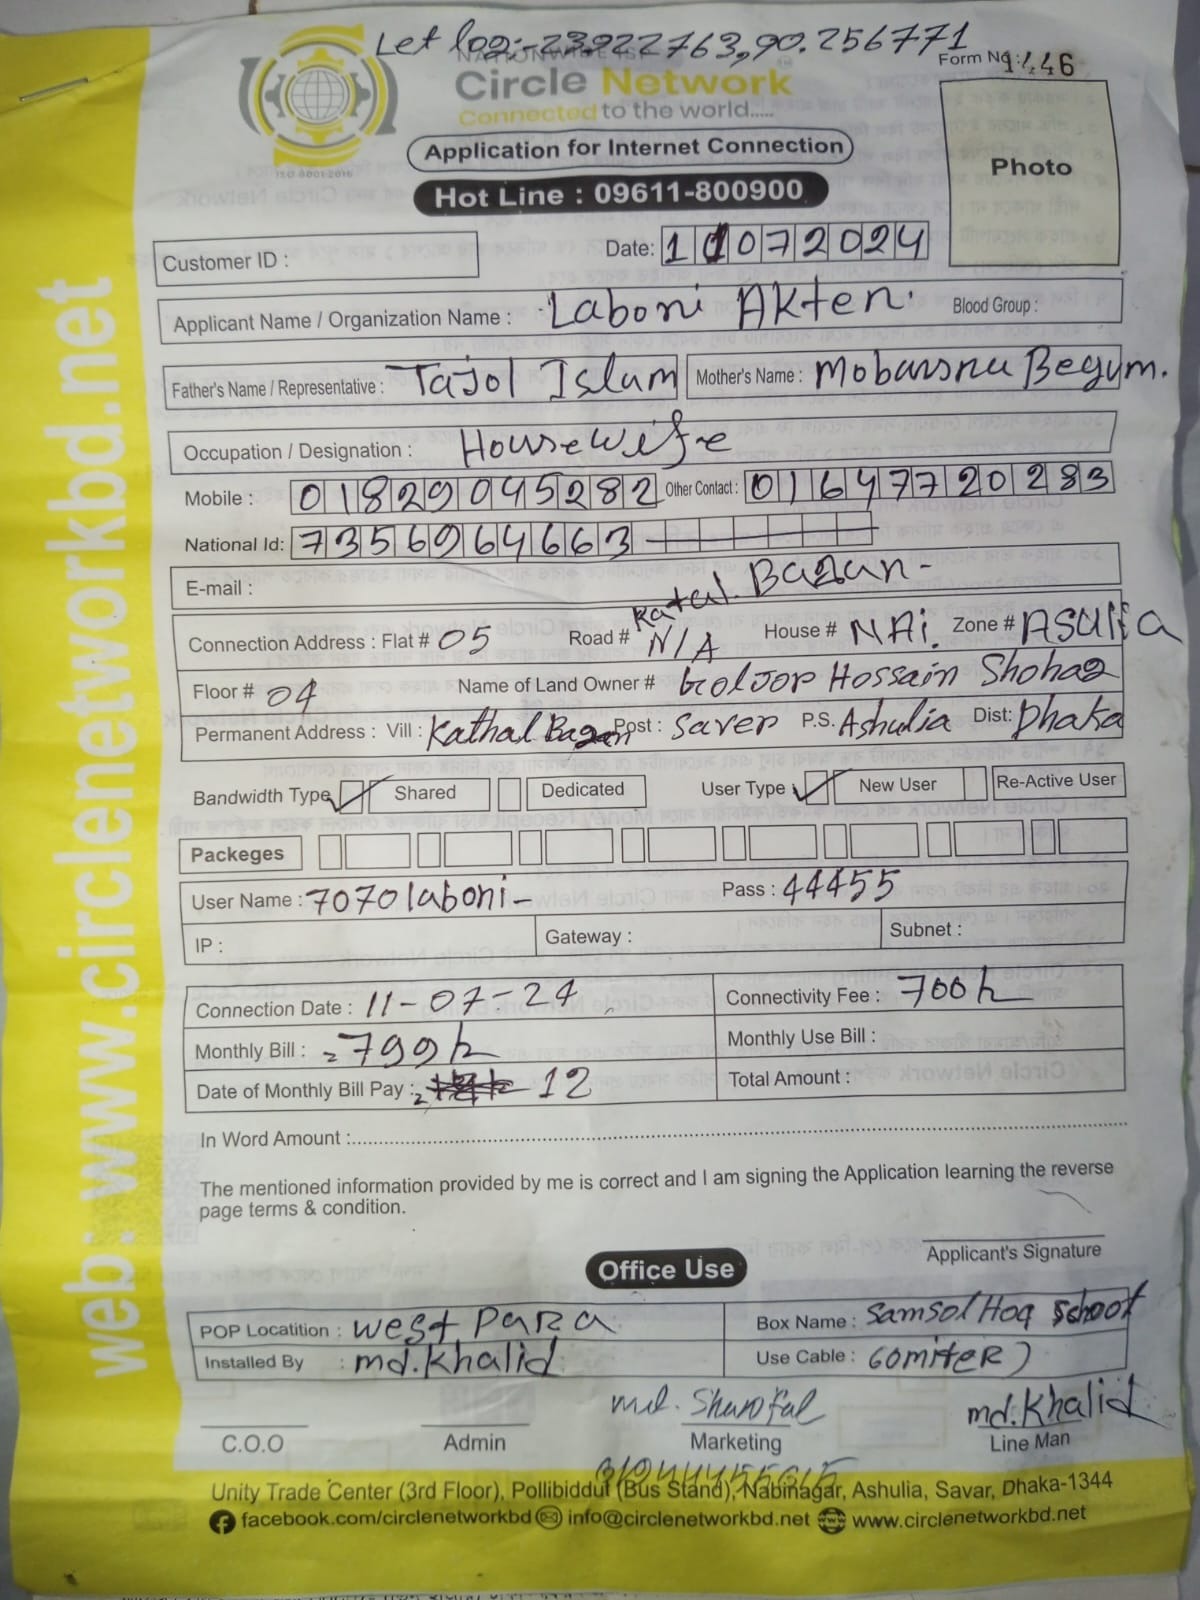 Let log:-23.922763,90.256771
NATIONWIDE ISP
Form No: 1446
Circle Network
Connected to the world.....
ISO 9001:2015
Application for Internet Connection
Photo
Hot Line : 09611-800900
Customer ID :
Date: 11072024
Applicant Name / Organization Name : Laboni Akten. Blood Group :
Father's Name / Representative : Tajol Islam Mother's Name : Mobarsna Begum.
Occupation / Designation : Housewife
Mobile : 01829045282 Other Contact : 01647720283
National Id: 7356964663
E-mail :
Katal. Bagan -
Connection Address : Flat # 05 Road # N/A House # NAi. Zone # Asulia
Floor # 04 Name of Land Owner # Goljor Hossain Shohag
Permanent Address : Vill : Kathal Bagan Post : Saver P.S. Ashulia Dist: Dhaka
Bandwidth Type Shared Dedicated User Type New User Re-Active User
Packeges
User Name : 7070laboni- Pass : 44455
IP : Gateway : Subnet :
Connection Date : 11-07-24 Connectivity Fee : 700
Monthly Bill : 799 Monthly Use Bill :
Date of Monthly Bill Pay : 12 Total Amount :
In Word Amount :
The mentioned information provided by me is correct and I am signing the Application learning the reverse
page terms & condition.
Applicant's Signature
Office Use
POP Locatition : West Para Box Name : Samsol Hoq School
Installed By : md.Khalid Use Cable : 60miteR)
md. Sharofal md.Khalid
C.O.O Admin Marketing Line Man
Unity Trade Center (3rd Floor), Pollibiddut (Bus Stand), Nabinagar, Ashulia, Savar, Dhaka-1344
facebook.com/circlenetworkbd info@circlenetworkbd.net www.circlenetworkbd.net
web : www.circlenetworkbd.net